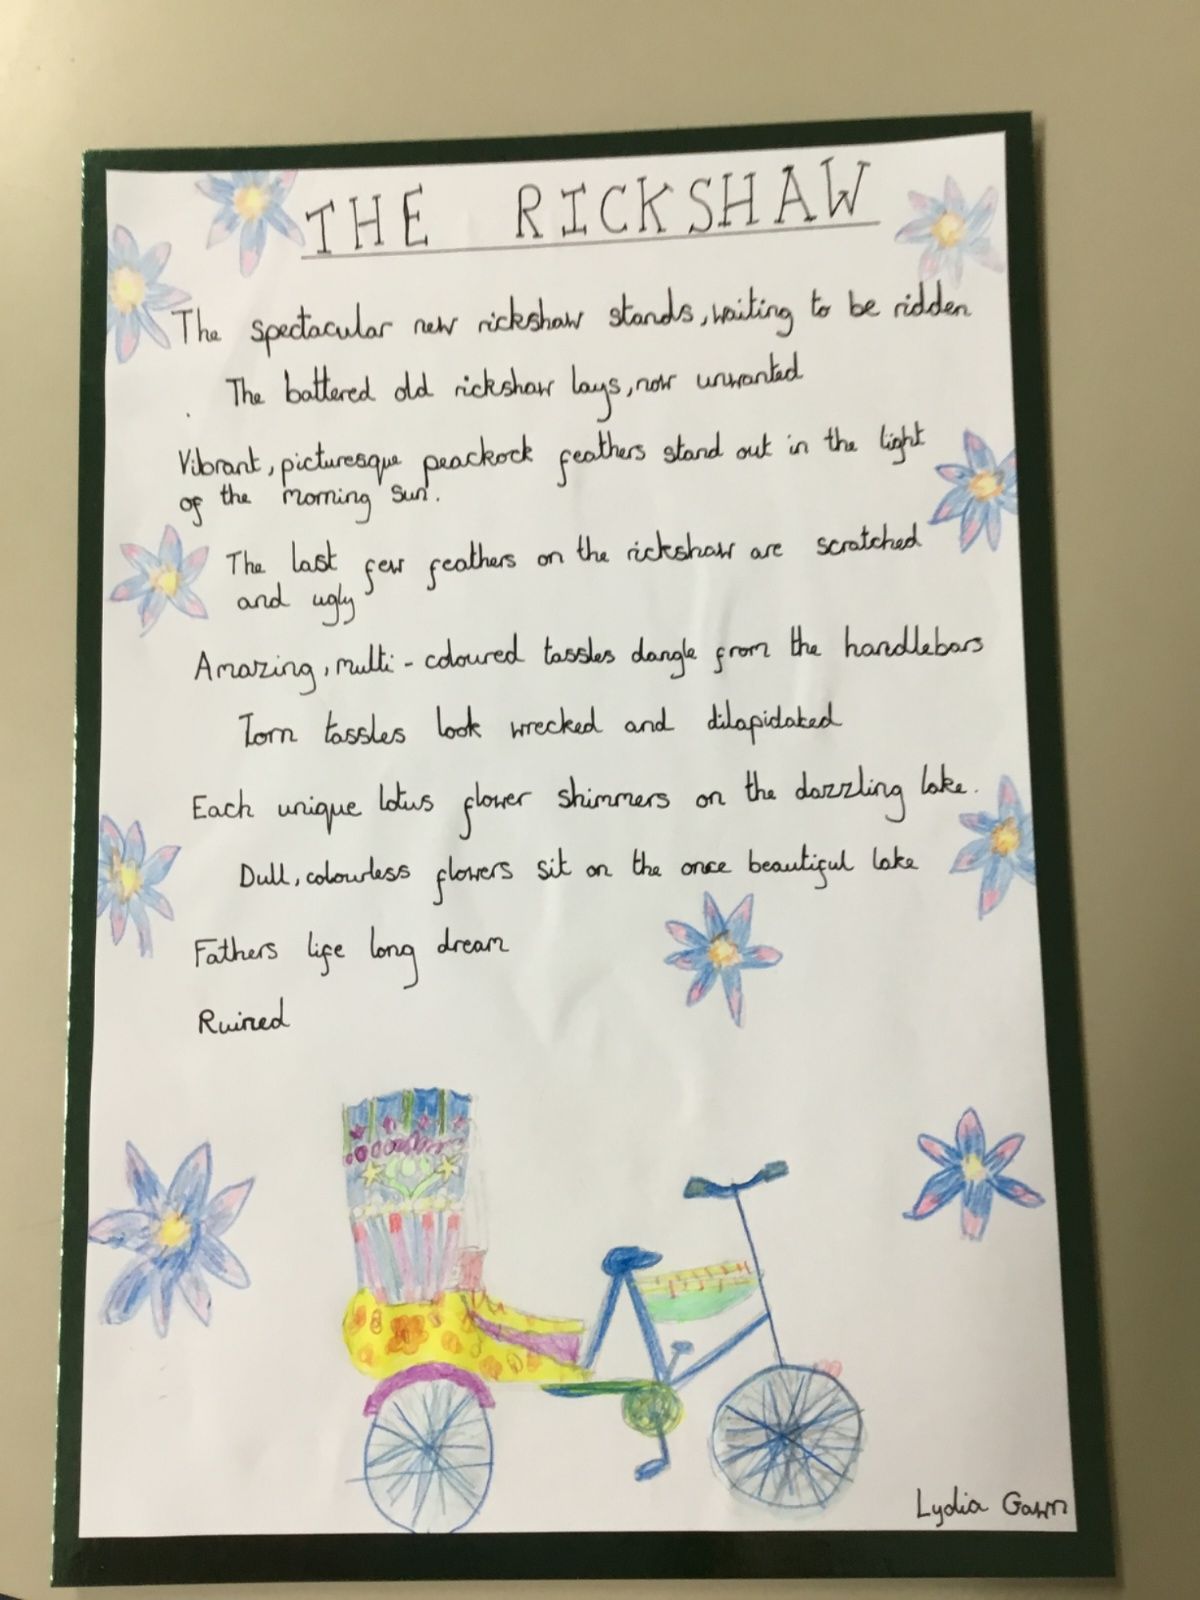 THE RICKSHAW
The spectacular new rickshaw stands, waiting to be ridden
The battered old rickshaw lays, now unwanted
Vibrant, picturesque peackock feathers stand out in the light
of the morning sun.
The last few feathers on the rickshaw are scratched
and ugly
Amazing, multi-coloured tassles dangle from the handlebars
Torn tassles look wrecked and dilapidated
Each unique lotus flower shimmers on the dazzling lake.
Dull, colourless flowers sit on the once beautiful lake
Fathers life long dream
Ruined
Lydia Gawn